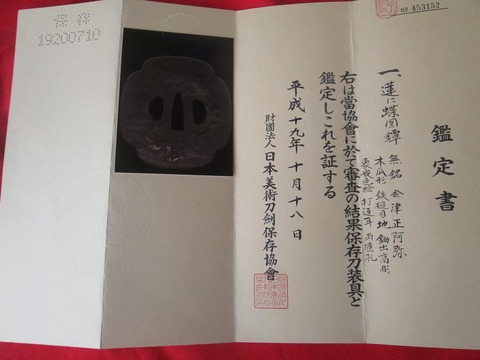 鑑定書
一、蓮に蝶図鐔 無銘 会津正阿弥
木瓜形 鉄槌目地 鋤出高彫
金銀色絵 打返耳 両櫃孔
右は當協會に於て審査の結果保存刀装具と
鑑定しこれを証する
平成十九年十月十八日
財團法人 日本美術刀劍保存協會
№ 453152
保存
19200710